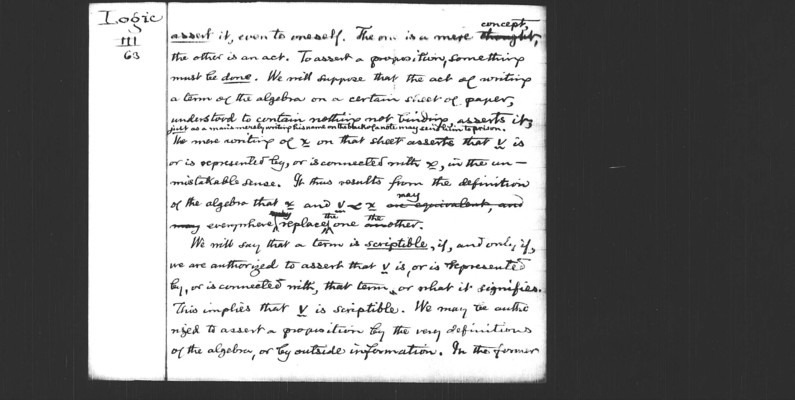 Logic
III
63
concept,
assert it, even to oneself. The one is a mere thought,
the other is an act. To assert a proposition, something
must be done. We will suppose that the act of writing
a term of the algebra on a certain sheet of paper,
understood to contain nothing not binding, asserts it;
just as a man's merely writing his name on the back of a note may send him to prison.
The mere writing of x on that sheet asserts that v is
or is represented by, or is connected with x, in the un-
mistakable sense. It thus results from the definition
of the algebra that x and v ⤙ x may are equivalent, and
may everywhere replace the one the another.
We will say that a term is scriptible, if, and only if,
we are authorized to assert that v is, or is represented
by, or is connected with, that term, or what it signifies.
This implies that v is scriptible. We may be autho
rized to assert a proposition by the very definitions
of the algebra, or by outside information. In the former